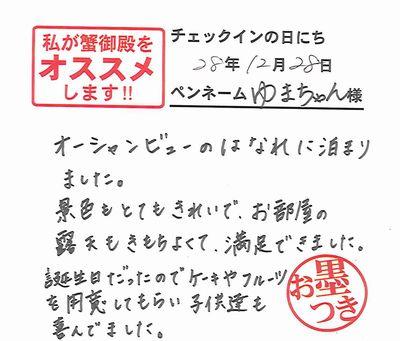 私が蟹御殿を
オススメ
します!!
チェックインの日にち
28年12月28日
ペンネーム ゆまちゃん 様
オーシャンビューのはなれに泊まり
ました。
景色もとてもきれいで、お部屋の
露天もきもちよくて、満足できました。
誕生日だったのでケーキやフルーツ
を用意してもらい子供達も
喜んでました。
お墨つき